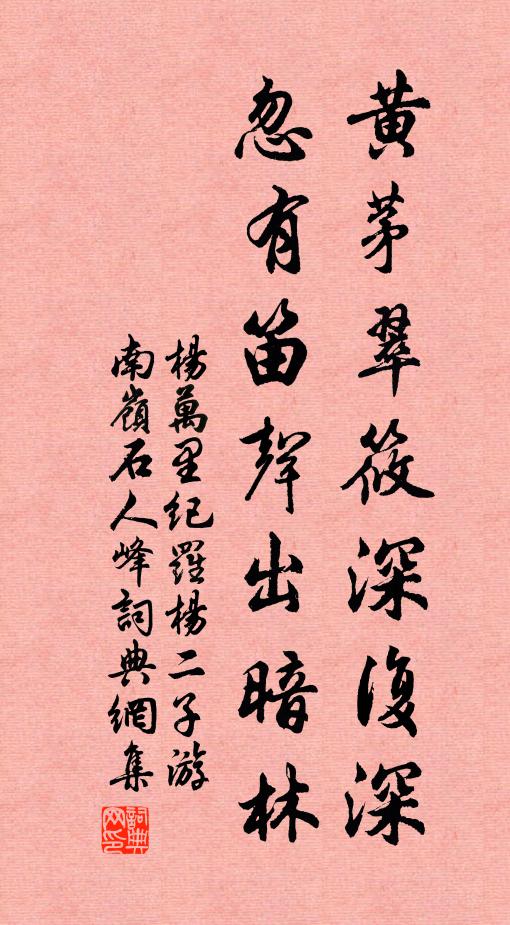 黃茅翠筱深復深
忽有笛聲出暗林
楊萬里紀羅楊二子游
南嶺石人峰詞典網集
詞典網印